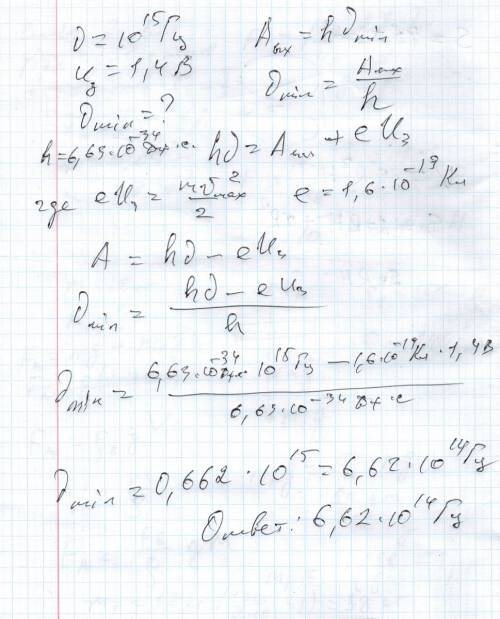 ν = 10^15 Гц
A_вых = hν_min
U_з = 1,4 В
ν_min = A_вых / h
ν_min = ?
h = 6,63·10^-34 Дж·с
hν = A_вых + eU_з
где eU_з = mv²_max / 2
e = 1,6·10^-19 Кл
A = hν - eU_з
ν_min = (hν - eU_з) / h
ν_min = (6,63·10^-34 Дж·с 10^15 Гц - 1,6·10^-19 Кл·1,4В) / (6,63·10^-34 Дж·с)
ν_min = 0,662·10^15 = 6,62·10^14 Гц
Ответ: 6,62·10^14 Гц